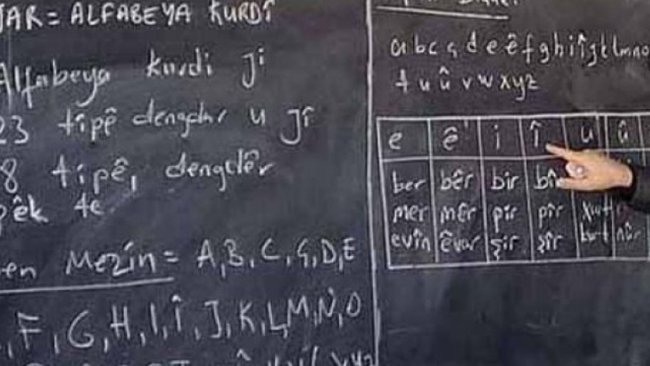 JAR = ALFABEYA KURDÎ
Alfabeya kurdi ji
23 tîpê dengdar u jî
8 tîpê, dengdêr
pêk te
Mezin = A, B, C, Ç, D, E
F, G, H, I, Î, J, K, L, M, N, O
a b c ç d e ê f g h i î j k l m n o
t u û v w x y z
e ê i î u û
ber bêr bir bîr
mer mêr pir pîr
evîn êvar şir şîr kurt nûr